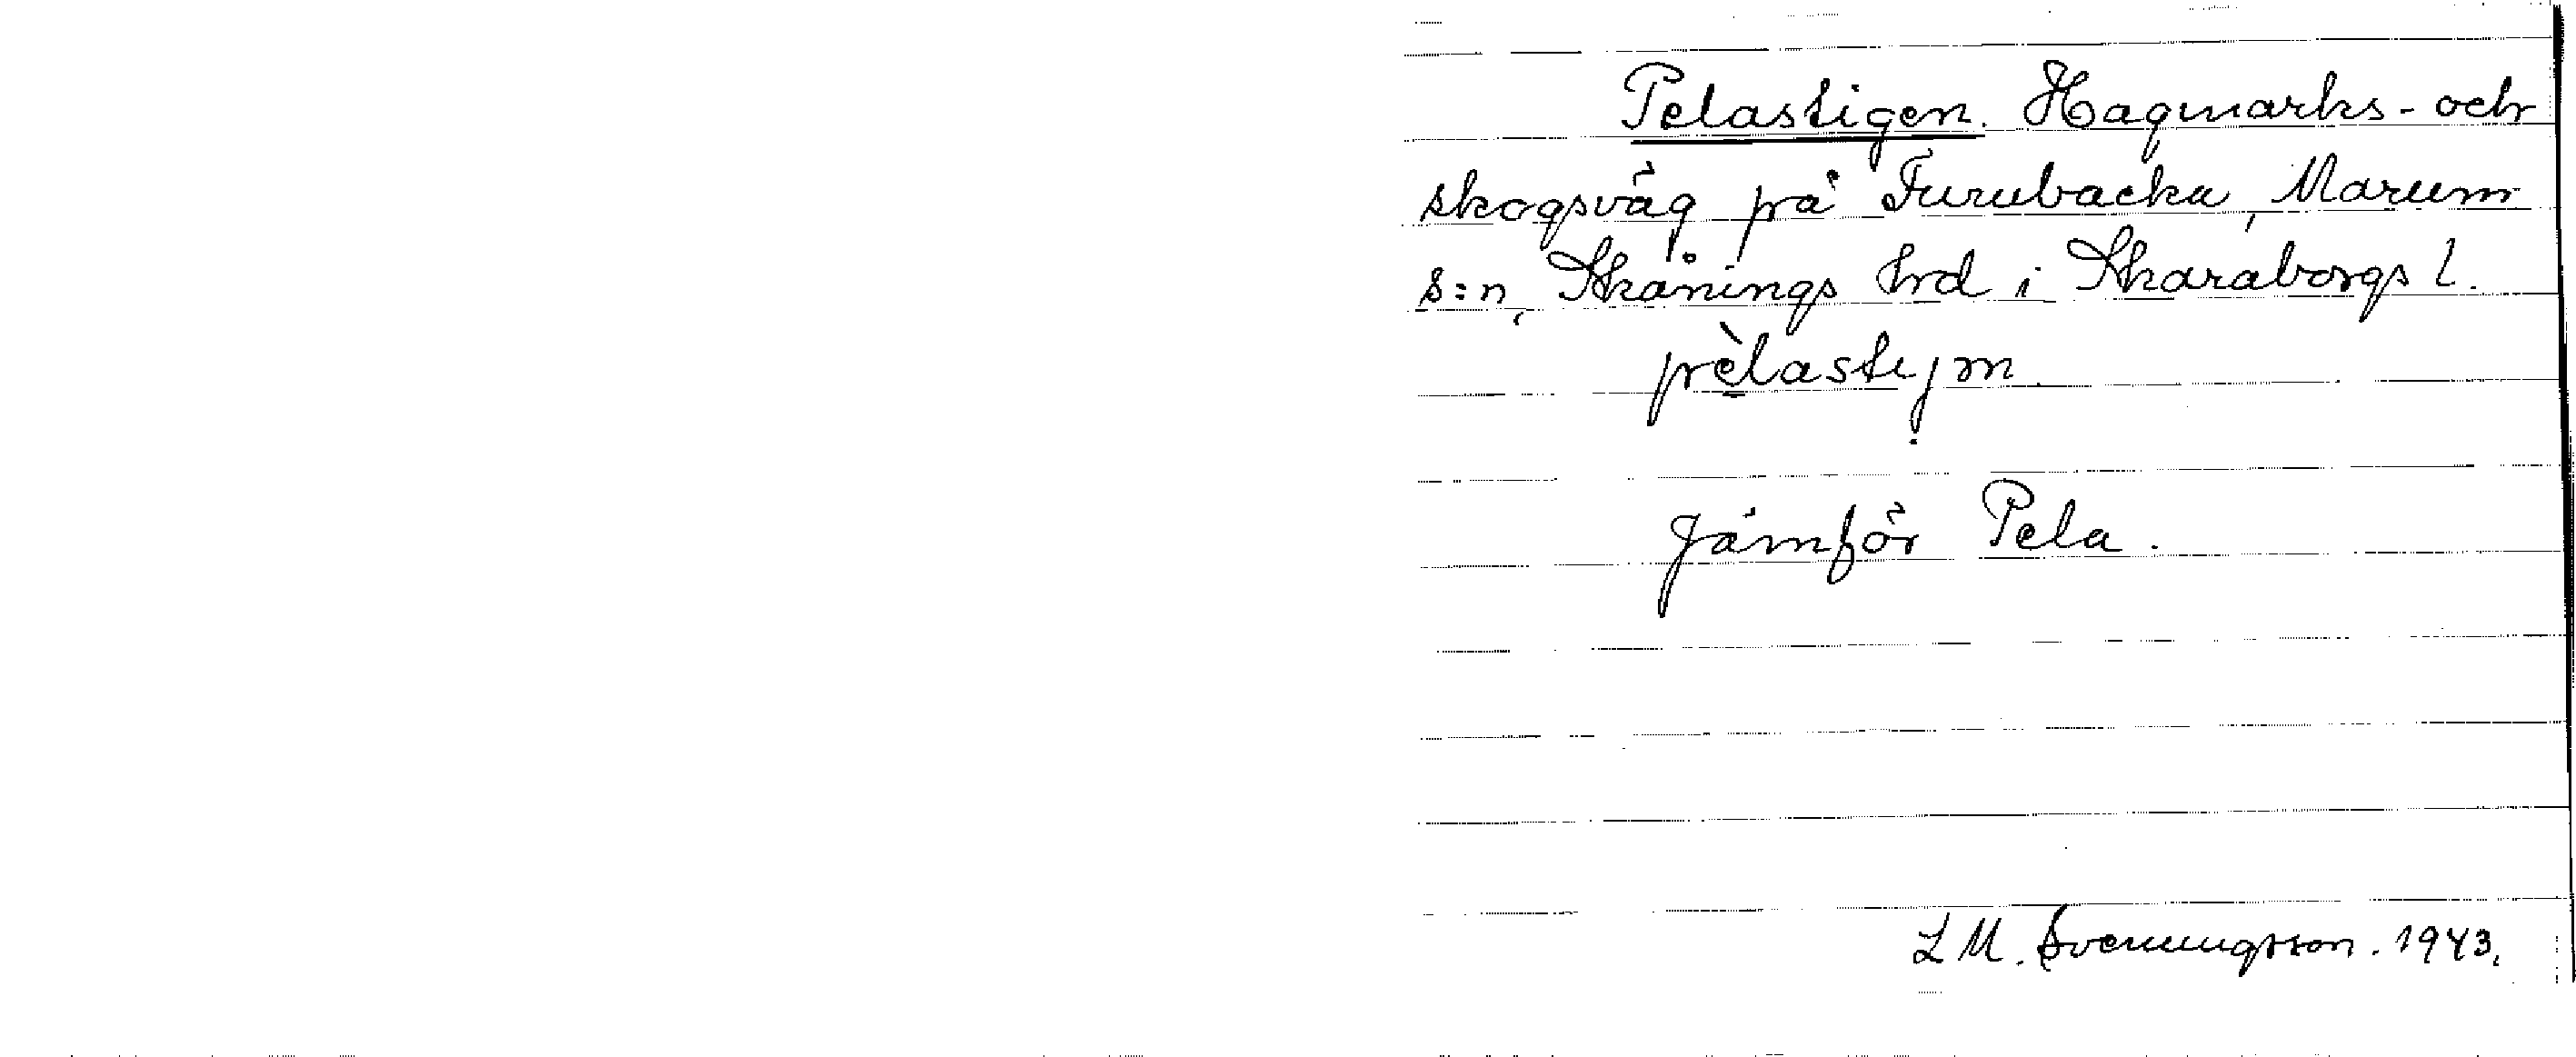 Pelastigen. Hagmarks- och
skogsväg på Furubacka, Marum
s:n, Skånings hrd i Skaraborgs l.
pèlastıjm
Jämför Pela.
L M. Svenungsson. 1943.